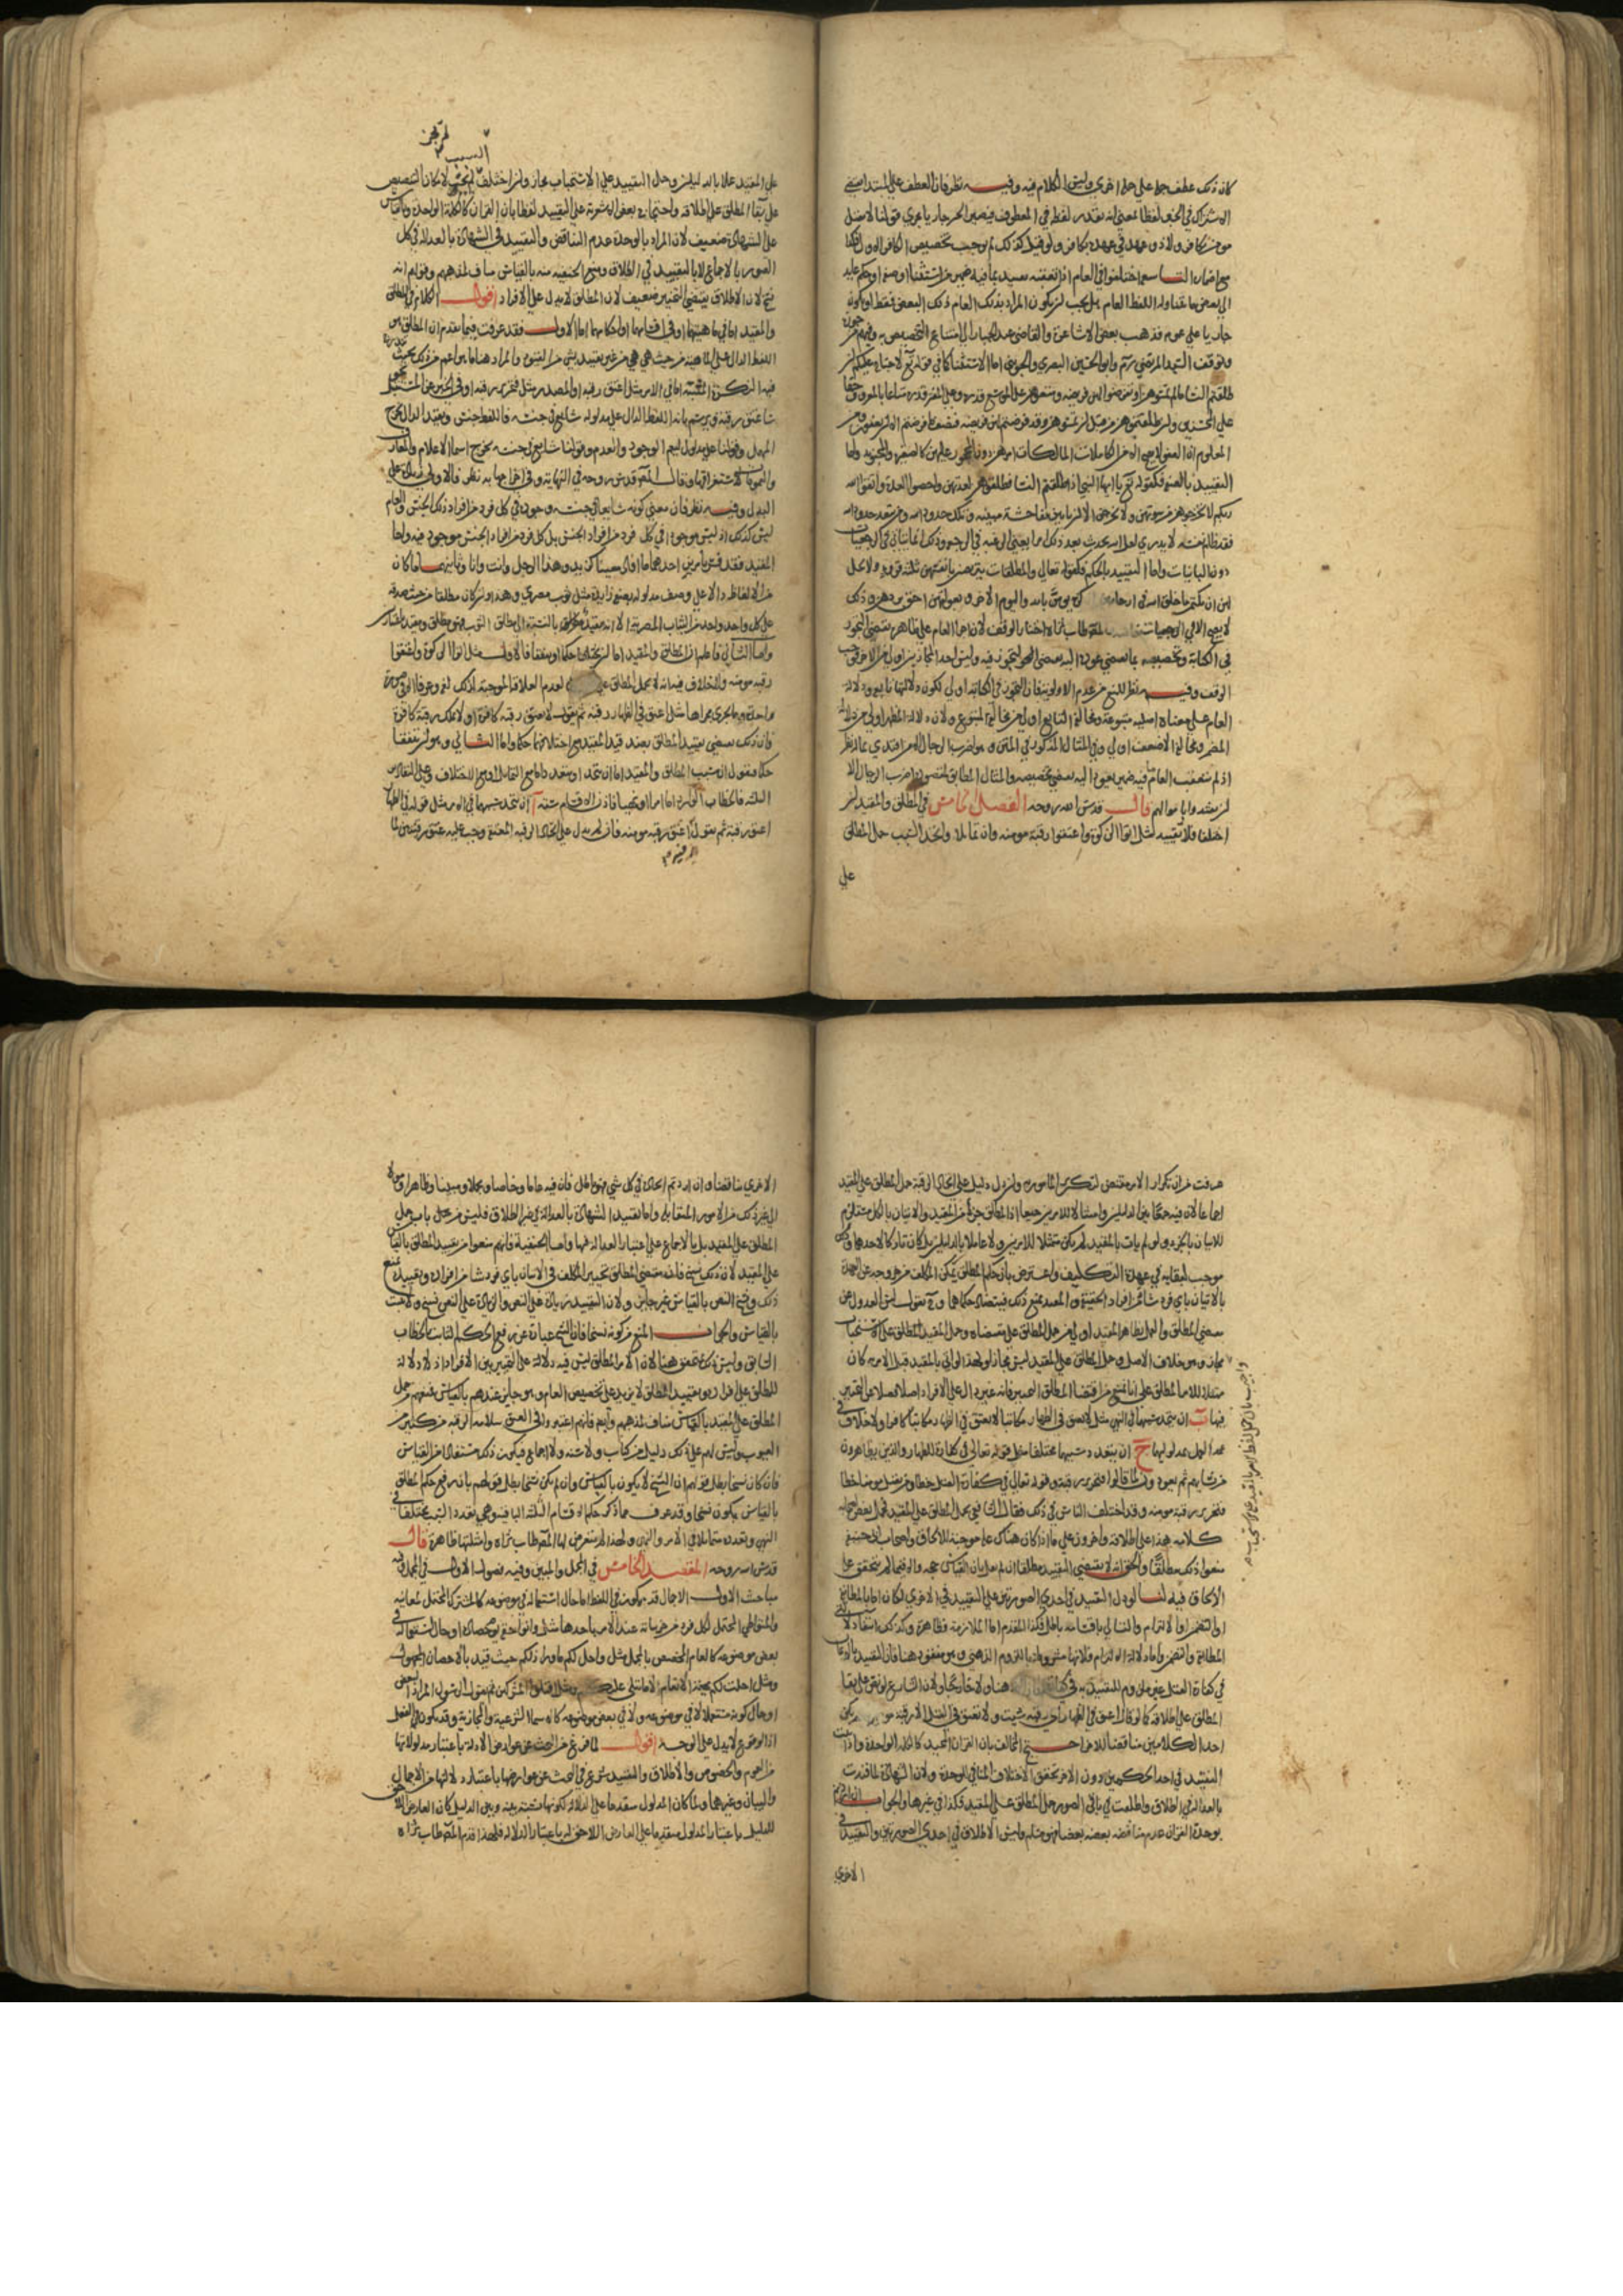 كان ذلك عطف جملة علي جملة اخري وليس الكلام فيه وفيه نظر فان العطف علي المبتدا يقتضي
الاشتراك في الخبر لفظا بمعني انه يقدر لفظ في المعطوف فيصير الخبر جاريا مجري قولنا لا يقتل
مومن بكافر ولا ذو عهد في عهده بكافر ولو قيل كذلك لم يوجب تخصيص الكافر الاول فكذا
مع اضماره التاسع اختلفوا في العام اذا تعقبه تقييد بما فيه ضمير من استثناء او صفة او حكم عايد
الي بعض ما تناوله اللفظ العام هل يجب ان يكون المراد بذلك العام ذلك البعض فقط او كونه
جاريا علي عمومه فذهب بعض الاشاعرة والقاضي عبد الجبار الي امتناع التخصيص به ومنهم من جوزه
وتوقف السيد المرتضي وابو الحسين البصري والجويني اما الاستثناء كما في قوله تع لا جناح عليكم ان
طلقتم النساء ما لم تمسوهن او تفرضوا لهن فريضة ومتعوهن علي الموسع قدره وعلي المقتر قدره متاعا بالمعروف حقا
علي المحسنين وان طلقتموهن من قبل ان تمسوهن وقد فرضتم لهن فريضة فنصف ما فرضتم الا ان يعفون ومن
المعلوم ان العفو لا يصح الا من الكاملات المالكات امرهن دون المحجور عليهن كالصغيرة والمجنونة واما
التقييد بالصفة فكقوله تع يا ايها النبي اذا طلقتم النساء فطلقوهن لعدتهن واحصوا العدة واتقوا الله
ربكم لا تخرجوهن من بيوتهن ولا يخرجن الا ان ياتين بفاحشة مبينة وتلك حدود الله ومن يتعد حدود الله
فقد ظلم نفسه لا تدري لعل الله يحدث بعد ذلك امرا يعني الرغبة في الرجعة وذلك انما يتاتي في الرجعيات
دون الباينات واما التقييد بالحكم فكقوله تعالي والمطلقات يتربصن بانفسهن ثلثة قروء ولا يحل
لهن ان يكتمن ما خلق الله في ارحامهن ان كن يومن بالله واليوم الاخر وبعولتهن احق بردهن وذلك
لا يصح الا في الرجعيات المصنف طاب ثراه اختار الوقف لان اجراء العام علي ظاهره يقتضي التجوز
في الكناية وتخصيصه بما يقتضي عودها اليه يقتضي التجوز فيه وليس احد المجازين اولي من الاخر فوجب
الوقف وفيه نظر للمنع من عدم الاولوية فان التجوز في الكناية اولي لكون دلالتها تابعة ودلالة
العام علي معناه اصلية متبوعة ومخالفة التابع اولي من مخالفة المتبوع ولان دلالة المظهر اولي من دلالة
المضمر ومخالفة الاضعف اولي وفي المثال المذكور في المتن وهو اضرب الرجال الا من افتدي بماله نظر
اذ لم يتعقب العام فيه ضمير يعود اليه يقتضي تخصيصه والمثال المطابق لمقصوده اضرب الرجال الا
ان يفتدوا باموالهم قال قدس الله روحه الفصل الخامس في المطلق والمقيد ان
اختلفا فلا تقييد مثل اتوا الزكوة واعتقوا رقبة مومنة وان تماثلا واتحد السبب حمل المطلق
علي
علي المقيد عملا بالدليلين وحمل التقييد علي الاستحباب مجاز وان اختلف السبب لم يجب لامكان التنصيص
علي بقاء المطلق علي اطلاقه واحتجاج بعض الاشعرية علي التقييد لفظا بان القران كالكلمة الواحدة وبالقياس
علي الشهادة ضعيف لان المراد بالوحدة عدم التناقض والتقييد في الشهادة بالعدالة في كل
الصور بالاجماع لا بالتقييد في الطلاق ومنع الحنفية منه بالقياس مناف لمذهبهم وقولهم انه
نسخ لان الاطلاق يقتضي التخيير ضعيف لان المطلق لا يدل علي الافراد اقول الكلام في المطلق
والمقيد اما في ماهيتهما او في اقسامهما او احكامهما اما الاول فقد عرفت فيما تقدم ان المطلق هو
اللفظ الدال علي الماهية من حيث هي هي من غير تقييد بشي من القيود والمراد هنا ما هو اعم من ذلك بحيث
فيه النكرة المثبتة اما في الامر مثل اعتق رقبة او المصدر مثل فتحرير رقبة او في الخبر عن المستقبل نحو
ساعتق رقبة ويرسم بانه اللفظ الدال علي مدلوله شايع في جنسه فاللفظ جنس وبقيد الدال خرج
المهمل وقولنا علي مدلول ليعم الوجود والعدم وقولنا شايع في جنسه يخرج اسماء الاعلام والمعارف
قال المصنف قدس روحه في النهاية وفي اخراجها به نظر
البدل وفيه نظر فان معني كونه شايعا في جنسه وجوده في كل فرد من افراد ذلك الجنس والعام
ليس كذلك اذ ليس موجودا في كل فرد من افراد الجنس بل كل فرد من افراد الجنس موجود فيه واما
المقيد فقد فسر بامرين احدهما ما افاد معينا كزيد وهذا الرجل وانت وانا وثانيهما ما كان
من الالفاظ دالا علي وصف مدلوله بصفة زايدة مثل ثوب مصري وهذا وان كان مطلقا من حيث صدقه
علي كل واحد واحد من الثياب المصرية الا انه مقيد بالنسبة الي مطلق الثوب فهو مطلق ومقيد باعتبارين
واما الثاني فاعلم ان المطلق والمقيد اما ان يختلفا حكما او يتفقا فالاول مثل اتوا الزكوة واعتقوا
رقبة مومنة ولا خلاف فيه انه لا يحمل المطلق علي لعدم العلاقة الموجبة لذلك
واحدة وما يجري مجراها مثل اعتق في الظهار رقبة ثم يقول لا تعتق رقبة كافرة او لا تملك رقبة كافرة
فان ذلك يقتضي تقييد المطلق بضد قيد المقيد مع اختلافهما حكما واما الثاني وهو ان يتفقا
حكما فنقول ان سبب المطلق والمقيد اما ان يتحد او يتعدد
الثلثة فالخطاب الوارد اما امرا او نهيا فاذن الاقسام ستة ا ان يتحد سببهما في الامر مثل قوله في الظهار
اعتق رقبة ثم يقول اعتق رقبة مومنة فان لم يدل علي اتحاد الرقبة المعتقة وجب عليه عتق رقبتين لما
عرفت من ان تكرار الامر مقتض لتكرر المامور به وان دل دليل علي اتحاد الرقبة حمل المطلق علي المقيد
اجماعا لان فيه جمعا بين الدليلين وامتثالا للامرين جميعا اذ المطلق جزء من المقيد والاتيان بالكل مستلزم
للاتيان بالجزء ولو لم يات بالمقيد لم يكن ممتثلا للامرين ولا عاملا بالدليلين بل كان تاركا لاحدهما وذلك
موجب لبقايه في عهدة التكليف واعترض بان حكم المطلق تمكن المكلف من خروجه عن العهدة
بالاتيان باي فرد شاء من افراد الحقيقة والمقيد يمنع ذلك فيتضاد حكماهما وح نقول ليس العدول عن
مقتضي المطلق والعمل بظاهر المقيد اولي من حمل المطلق علي مقتضاه وحمل المقيد علي الاستحباب
مجاز وهو خلاف الاصل وحمل المطلق علي المقيد ليس بمجاز ولهذا لو اتي بالمقيد قبل الامر به كان
واجيب بان حمل لفظ امر المقيد علي الاستحباب
فيها ب ان يتحد سببهما في النهي مثل لا تعتق في الظهار مكاتبا لا تعتق في الظهار مكاتبا كافرا ولا خلاف في
عدم العمل بمدلوليهما ج ان يتعدد سببهما مختلفا مثل قوله تعالي في كفارة الظهار والذين يظاهرون
من نسايهم ثم يعودون لما قالوا فتحرير رقبة وقوله تعالي في كفارة القتل خطا ومن قتل مومنا خطا
فتحرير رقبة مومنة وقد اختلف الناس في ذلك فقال الشافعي بحمل المطلق علي المقيد فحمل بعض اصحابه
كلامه هذا علي اطلاقه واخرون علي ما اذا كان هناك علة موجبة للالحاق واصحاب ابي حنيفة
منعوا ذلك مطلقا والحق انه لا يقتضي التقييد مطلقا ان لم نقل بان القياس حجة والا فيما لم يتحقق علة
الالحاق فيه لنا لو دل التقييد في احدي الصورتين علي التقييد في الاخري لكان اما بالمطابقة
او التضمن او الالتزام والتالي باقسامه باطل فكذا المقدم اما الملازمة فظاهرة وكذلك انتفاء دلالتي
المطابقة والتضمن واما دلالة الالتزام فلانها مشروطة باللزوم الذهني وهو مفقود هنا فان التقييد بالايمان
في كفارة القتل غير ملزوم للتقييد به في هنا ولا خارجا ولان الشارع لو نص علي بقاء
المطلق علي اطلاقه كما لو قال اعتق في الظهار اي رقبة شيت ولا تعتق في القتل الا رقبة لم يكن
احد الكلامين مناقضا للاخر احتج المخالف بان القران المجيد كالكلمة الواحدة
التقييد في احد الحكمين دون الاخر تحقق الاختلاف المنافي للوحدة ولان الشهادة لما قيدت
بالعدالة في الطلاق واطلقت في باقي الصور حمل المطلق علي المقيد فكذا في غيرها والجواب المراد
بوحدة القران عدم مناقضة بعضه بعضا فهو مسلم وليس الاطلاق في احدي الصورتين والتقييد في
الاخري
الاخري مناقضا وان اردتم اتحاده في كل شي فهو باطل فان فيه عاما وخاصا ومجملا ومبينا وظاهرا وماولا
الي غير ذلك من الامور المتقابلة واما تقييد الشهادة بالعدالة في غير الطلاق فليس من حمل باب حمل
المطلق علي المقيد بل بالاجماع علي اعتبار العدالة فيها واما الحنفية فانهم منعوا من تقييد المطلق بالقياس
علي المقيد لان ذلك نسخ فانه مقتضي المطلق تخيير المكلف في الاتيان باي فرد شاء من افراده وتقييده يمنع
ذلك ونسخ النص بالقياس غير جايز ولان التقييد زيادة علي النص والزيادة علي النص نسخ ولا نسخ
بالقياس والجواب المنع من كونه نسخا فان النسخ عبارة عن رفع الحكم الثابت بالخطاب
السابق وليس ذلك بمتحقق هنا لان الامر المطلق ليس فيه دلالة علي التخيير بين الافراد اذ لا دلالة
للمطلق علي افراده وتقييد المطلق لا يزيد علي تخصيص العام وهو جايز عندهم بالقياس فمنعهم من حمل
المطلق علي المقيد بالقياس مناف لمذهبهم وايضا فانهم اعتبروا في العتق سلامة الرقبة من كثير من
العيوب وليس لهم علي ذلك دليل من كتاب ولا سنة ولا اجماع فيكون ذلك مستفادا من القياس
فان كان نسخا بطل قولهم ان النسخ لا يكون بالقياس وان لم يكن نسخا بطل قولهم بان رفع حكم المطلق
بالقياس يكون نسخا وقد عرف مما ذكر حكم الاقسام الثلثة الباقية وهي تعدد السبب مختلفا في
النهي وتعدده متماثلا في الامر والنهي ولهذا لم يتعرض لها المصنف طاب ثراه وامثلتها ظاهرة قال
قدس الله روحه المقصد الخامس في المجمل والمبين وفيه فصول الاول في المجمل وفيه
مباحث الاول الاجمال قد يكون في اللفظ اما حال استعماله في موضوعه كالمشترك المحتمل لمعانيه
والمتواطي المحتمل لكل فرد من جزئياته عند الامر باحدها مثل واتوا حقه يوم حصاده او حال استعماله في
بعض موضوعه كالعام المخصوص بالمجمل مثل واحل لكم ما وراء ذلكم حيث قيد بالاحصان المجهول
ومثل احلت لكم بهيمة الانعام الا ما يتلي عليكم ومثل اقتلوا المشركين ثم يقول الرسول المراد البعض
او حال كونه مستعملا لا في موضوعه ولا في بعض موضوعه كالاسماء الشرعية والمجازية وقد يكون في الفعل
اذ الوقوع لا يدل علي الوجه اقول لما فرغ من البحث عن عوارض الادلة باعتبار مدلولاتها
من العموم والخصوص والاطلاق والتقييد شرع في البحث عن عوارضها باعتبار دلالتها من الاجمال
والبيان وغيرهما ولما كان المدلول متقدما علي الدلالة لكونها نسبة بينه وبين الدليل كان العارض
للدليل باعتبار المدلول متقدما علي العارض اللاحق له باعتبار الدلالة فلهذا قدم المصنف طاب ثراه